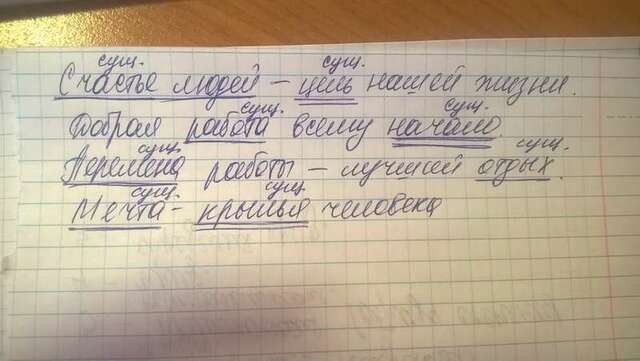 сущ. сущ.
Счастье людей – цель нашей жизни.
сущ. сущ.
Добрая работа всему начало.
сущ. сущ.
Перемена работы – лучший отдых.
сущ. сущ.
Мечта – крылья человека